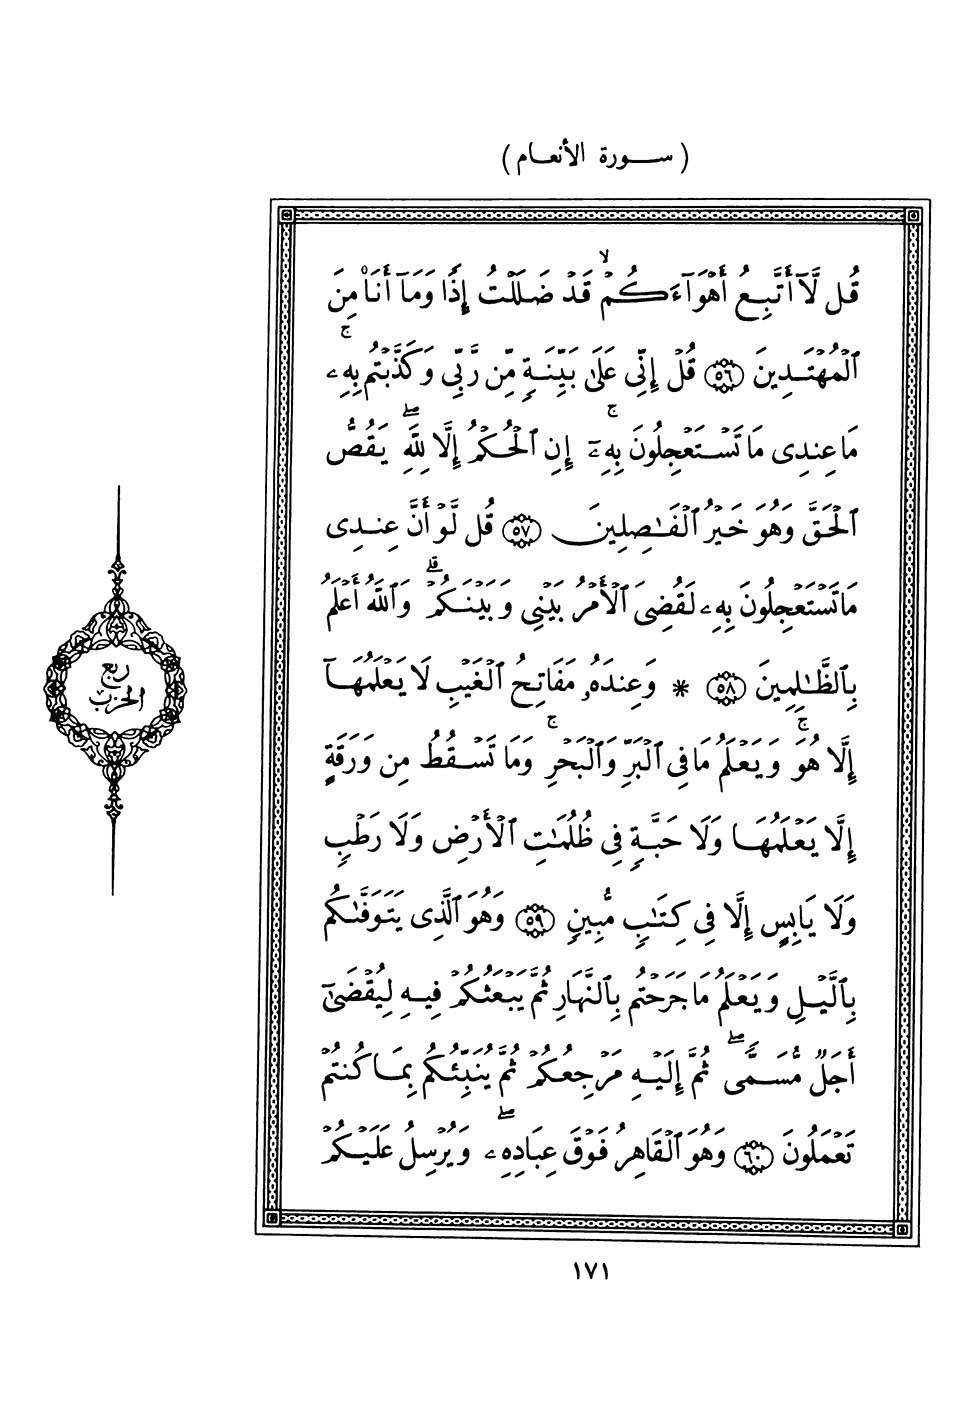 ( ســورة الأنعـام )
قُل لَّآ أَتَّبِعُ أَهْوَآءَكُمْ ۙ قَدْ ضَلَلْتُ إِذًا وَمَآ أَنَا۠ مِنَ
ٱلْمُهْتَدِينَ ٥٦ قُلْ إِنِّى عَلَىٰ بَيِّنَةٍ مِّن رَّبِّى وَكَذَّبْتُم بِهِۦ ۚ
مَا عِندِى مَا تَسْتَعْجِلُونَ بِهِۦٓ ۚ إِنِ ٱلْحُكْمُ إِلَّا لِلَّهِ ۖ يَقُصُّ
ٱلْحَقَّ وَهُوَ خَيْرُ ٱلْفَـٰصِلِينَ ٥٧ قُل لَّوْ أَنَّ عِندِى
مَا تَسْتَعْجِلُونَ بِهِۦ لَقُضِىَ ٱلْأَمْرُ بَيْنِى وَبَيْنَكُمْ ۗ وَٱللَّهُ أَعْلَمُ
بِٱلظَّـٰلِمِينَ ٥٨ * وَعِندَهُۥ مَفَاتِحُ ٱلْغَيْبِ لَا يَعْلَمُهَآ
إِلَّا هُوَ ۚ وَيَعْلَمُ مَا فِى ٱلْبَرِّ وَٱلْبَحْرِ ۚ وَمَا تَسْقُطُ مِن وَرَقَةٍ
إِلَّا يَعْلَمُهَا وَلَا حَبَّةٍ فِى ظُلُمَـٰتِ ٱلْأَرْضِ وَلَا رَطْبٍ
وَلَا يَابِسٍ إِلَّا فِى كِتَـٰبٍ مُّبِينٍ ٥٩ وَهُوَ ٱلَّذِى يَتَوَفَّىٰكُم
بِٱلَّيْلِ وَيَعْلَمُ مَا جَرَحْتُم بِٱلنَّهَارِ ثُمَّ يَبْعَثُكُمْ فِيهِ لِيُقْضَىٰٓ
أَجَلٌ مُّسَمًّى ۖ ثُمَّ إِلَيْهِ مَرْجِعُكُمْ ثُمَّ يُنَبِّئُكُم بِمَا كُنتُمْ
تَعْمَلُونَ ٦٠ وَهُوَ ٱلْقَاهِرُ فَوْقَ عِبَادِهِۦ ۖ وَيُرْسِلُ عَلَيْكُمْ
ربع
الحزب
١٧١